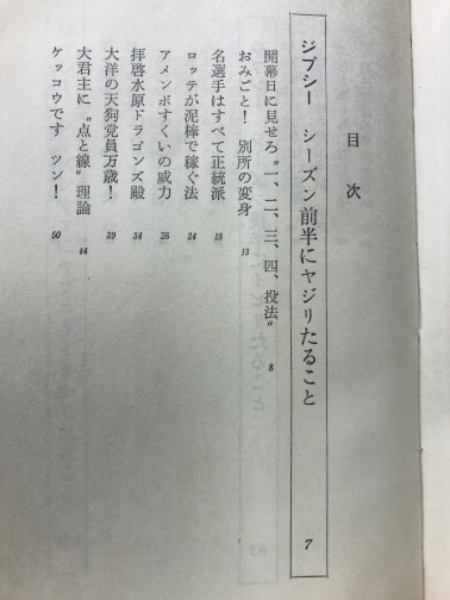 目次
ジプシー シーズン前半にヤジリたること 7
開幕日に見せろ〝一、二、三、四、投法〟 8
おみごと! 別所の変身 13
名選手はすべて正統派 18
ロッテが泥棒で稼ぐ法 24
アメンボすくいの威力 28
拝啓水原ドラゴンズ殿 34
大洋の天狗党員万歳! 39
大君主に〝点と線〟理論 44
ケッコウです ツン! 50